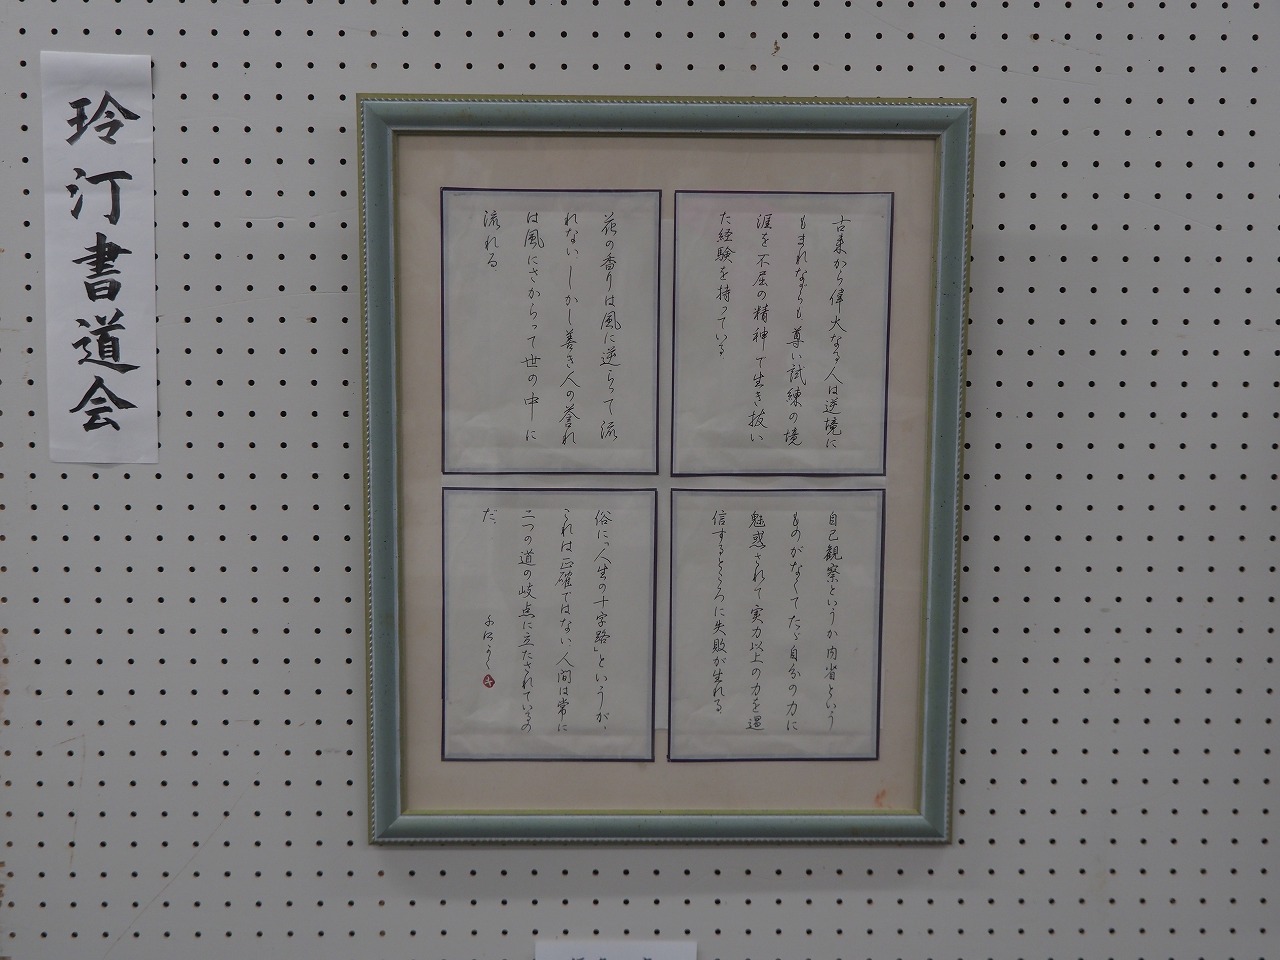 玲汀書道会
古来から偉大なる人は逆境に
もまれながらも尊い試練の境
涯を不屈の精神で生き抜い
た経験を持っている
花の香りは風に逆らって流
れない、しかし善き人の誉れ
は風にさからって世の中に
流れる
自己観察というか内省という
ものがなくてたゞ自分の力に
魅惑されて実力以上の力を過
信するところに失敗が生れる
俗に「人生の十字路」というが、
これは正確ではない、人間は常に
二つの道の岐点に立たされているの
だ、